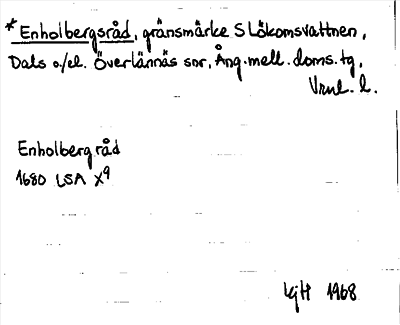 * Enholbergsråd, gränsmärke S Lökomsvattnen,
Dals o./el. Överlännäs snr, Ång. mell. doms. tg,
Vrnl. l.
Enholberg råd
1680 LSA X9
KjH 1968